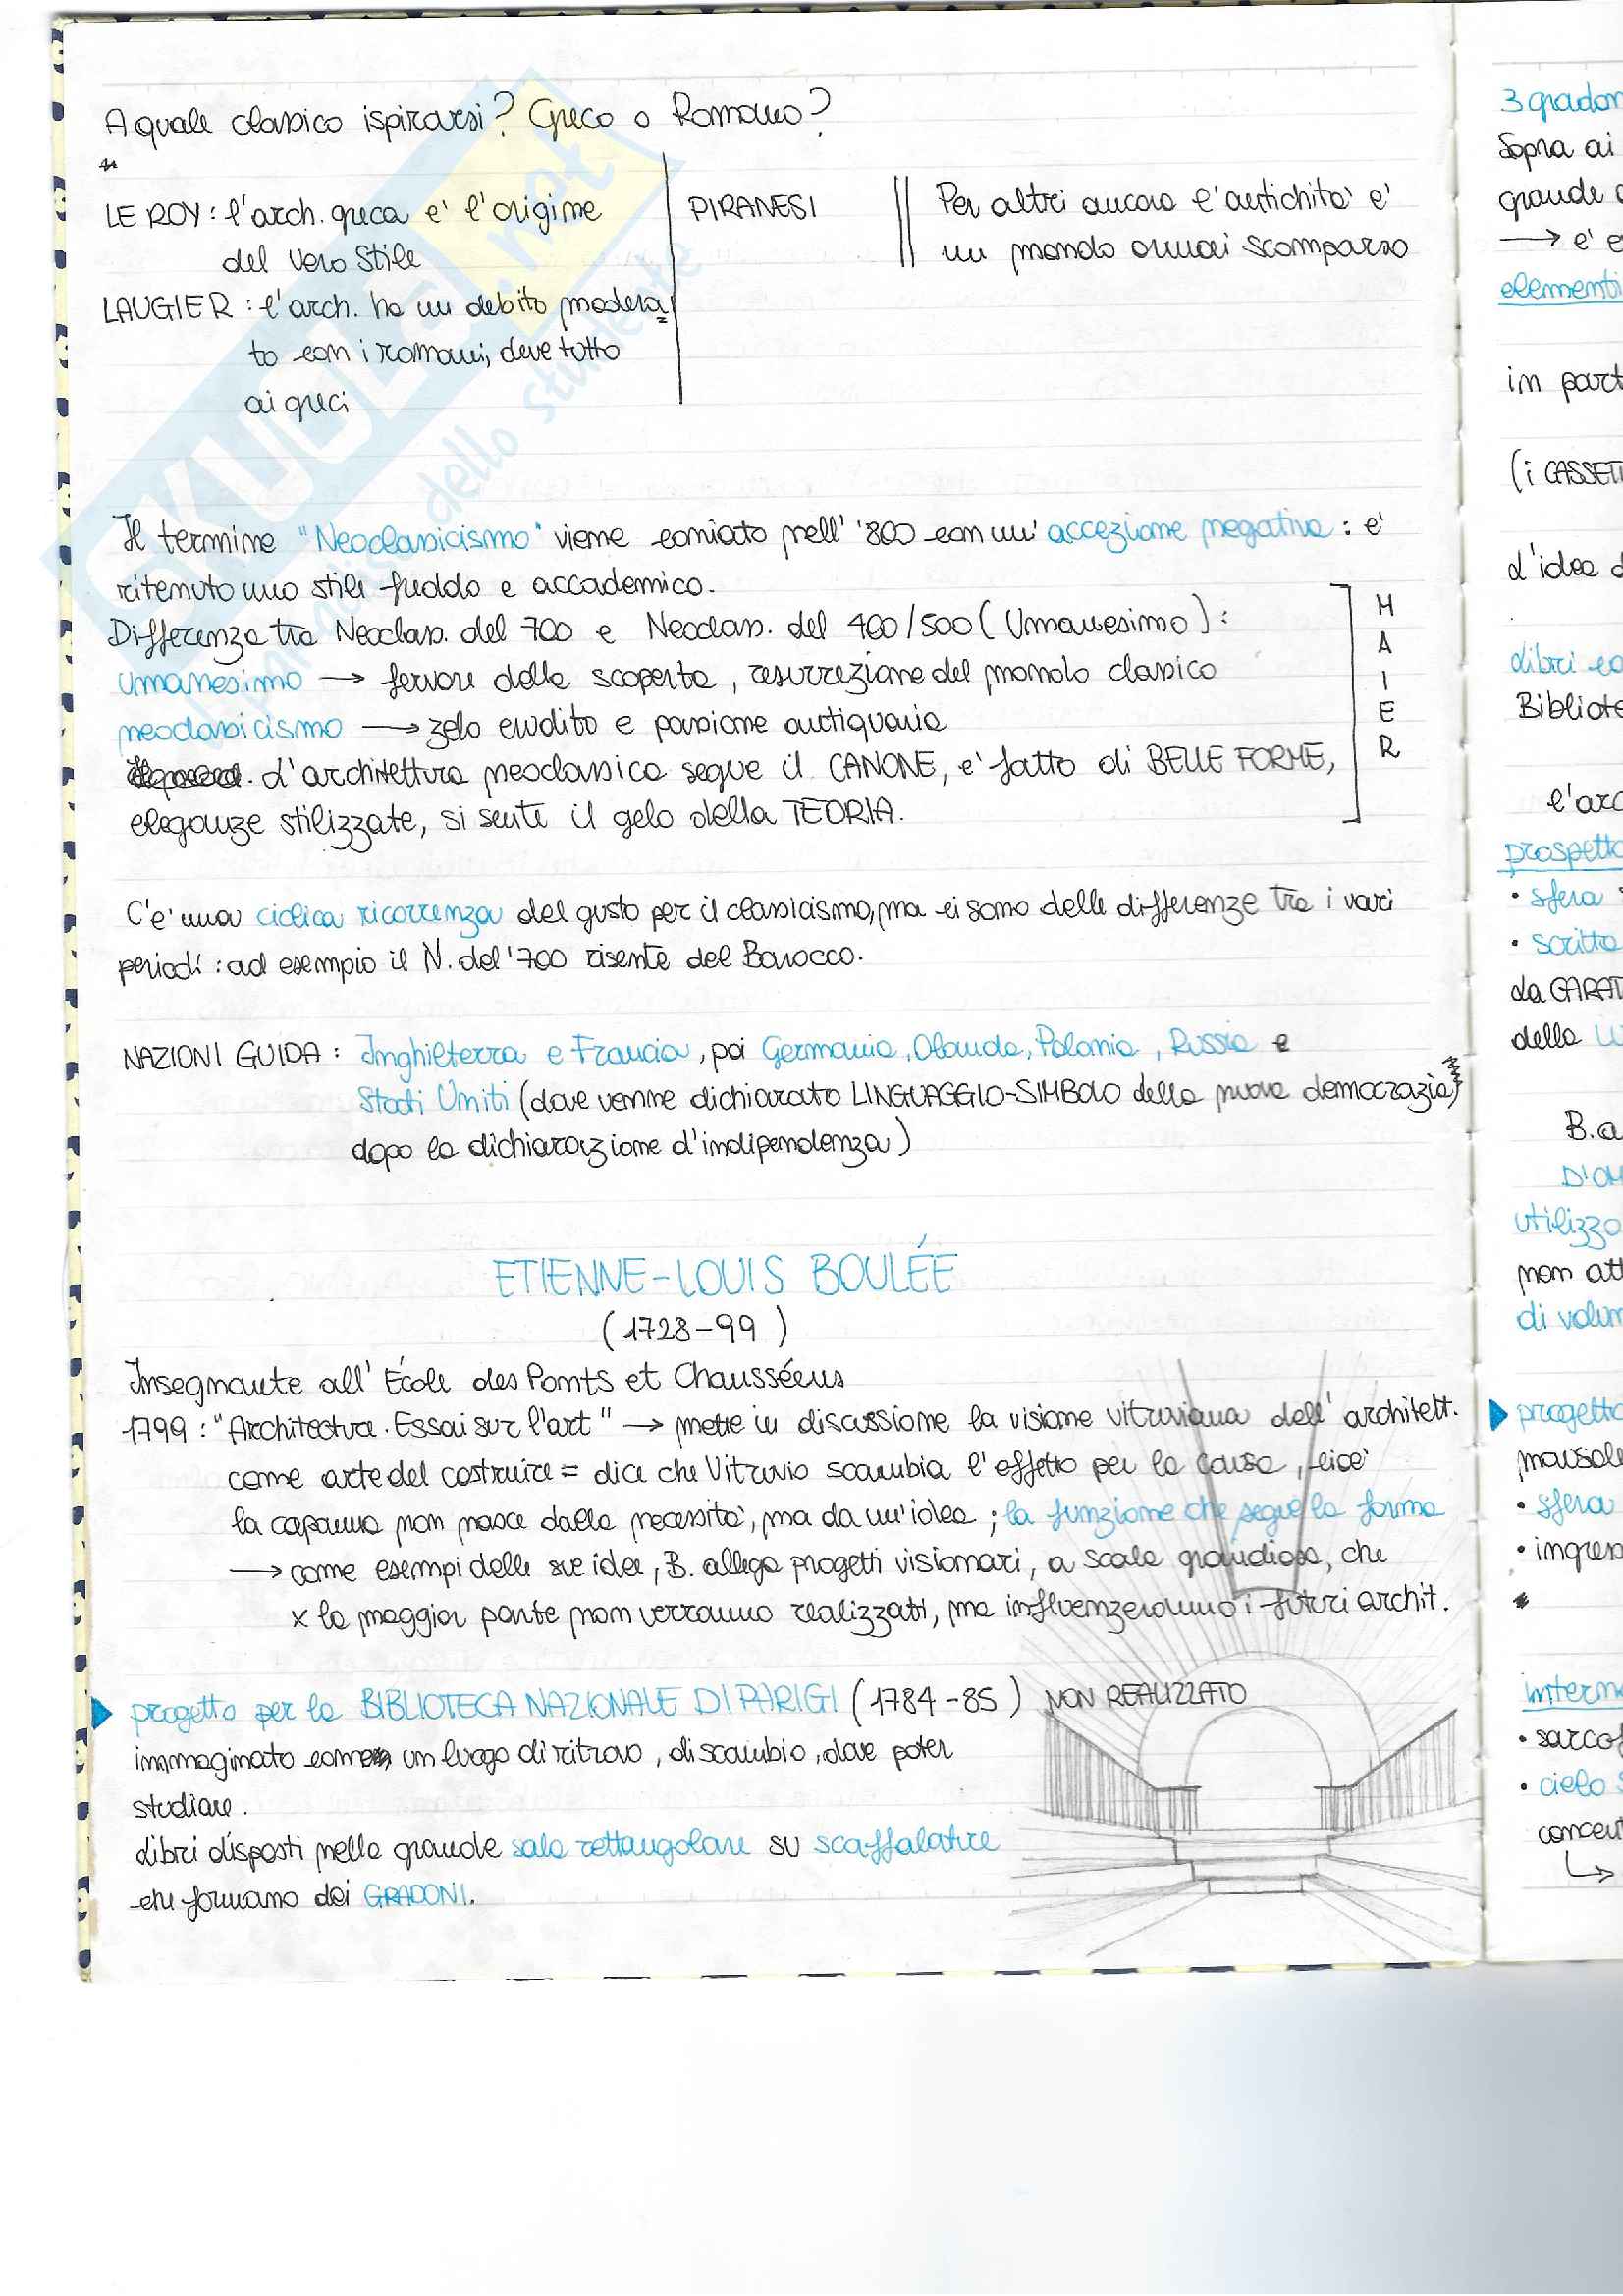 A quale classico ispirarsi? Greco o Romano?
LE ROY: l'arch. greca e' l'origine
del vero stile
LAUGIER: l'arch. ha un debito modera
to con i romani, deve tutto
ai greci
PIRANESI
Per altri ancora l'antichita' e'
un mondo ormai scomparso
Il termine "Neoclassicismo" viene coniato nell' '800 con un' accezione negativa: e'
ritenuto uno stile freddo e accademico.
Differenza tra Neoclass. del 700 e Neoclass. del 400/500 (Umanesimo):
umanesimo → fervore della scoperta, resurrezione del mondo classico
neoclassicismo → zelo erudito e passione antiquaria
L'architettura neoclassica segue il CANONE, e' fatto di BELLE FORME,
eleganze stilizzate, si sente il gelo della TEORIA.
MAIER
C'e' una ciclica ricorrenza del gusto per il classicismo, ma ci sono delle differenze tra i vari
periodi: ad esempio il N. del '700 risente del Barocco.
NAZIONI GUIDA: Inghilterra e Francia, poi Germania, Olanda, Polonia, Russia e
Stati Uniti (dove venne dichiarato LINGUAGGIO-SIMBOLO della nuova democrazia
dopo la dichiarazione d'indipendenza)
ETIENNE-LOUIS BOULÉE
(1728-99)
Insegnante all' École des Ponts et Chausséeus
1799: "Architectur. Essai sur l'art" → mette in discussione la visione vitruviana dell' architett.
come arte del costruire = dice che Vitruvio scambia l'effetto per la causa, cioe'
la capanna non nasce dalla necessita', ma da un'idea; la funzione che segue la forma
→ come esempi delle sue idee, B. allega progetti visionari, a scala grandiosa, che
x la maggior parte non verranno realizzati, ma influenzeranno i futuri archit.
progetto per la BIBLIOTECA NAZIONALE DI PARIGI (1784-85) NON REALIZZATO
immaginato come un luogo di ritrovo, di scambio, dove poter
studiare.
Libri disposti nella grande sala rettangolare su scaffalature
che formano dei GRADONI.
3 gradon
Sopra ai
grande
→ e' e
elementi
in part
(i CASSETT
L'idea d
Libri co
Bibliote
l'arc
prospetto
• sfera
• scritta
da CARAT
della
B. a
D'OM
utilizza
non att
di volum
progetto
mausole
• sfera
• ingres
interno
• sarcof
• cielo
concett
SKUOLA.net
paradiso dello studente